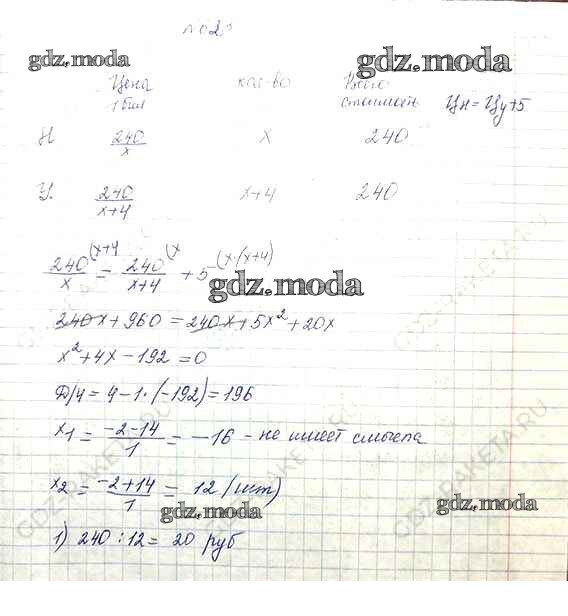 gdz.moda
gdz.moda
Цена 1 бил кол-во Всего стоимость Цн = Цу + 5
Н 240/x x 240
У. 240/(x+4) x+4 240
240/x (x+4 = 240/(x+4) (x + 5 (x·(x+4)
gdz.moda
240x + 960 = 240x + 5x² + 20x
x² + 4x - 192 = 0
Д/4 = 4 - 1·(-192) = 196
x₁ = (-2-14)/1 = -16 - не имеет смысла
x₂ = (-2+14)/1 = 12 (шт)
gdz.moda
gdz.moda
1) 240 : 12 = 20 руб
GDZ-RAKETA.RU
GDZ-RAKETA.RU
GDZ-RAKETA.RU
GDZ-RAKETA.RU